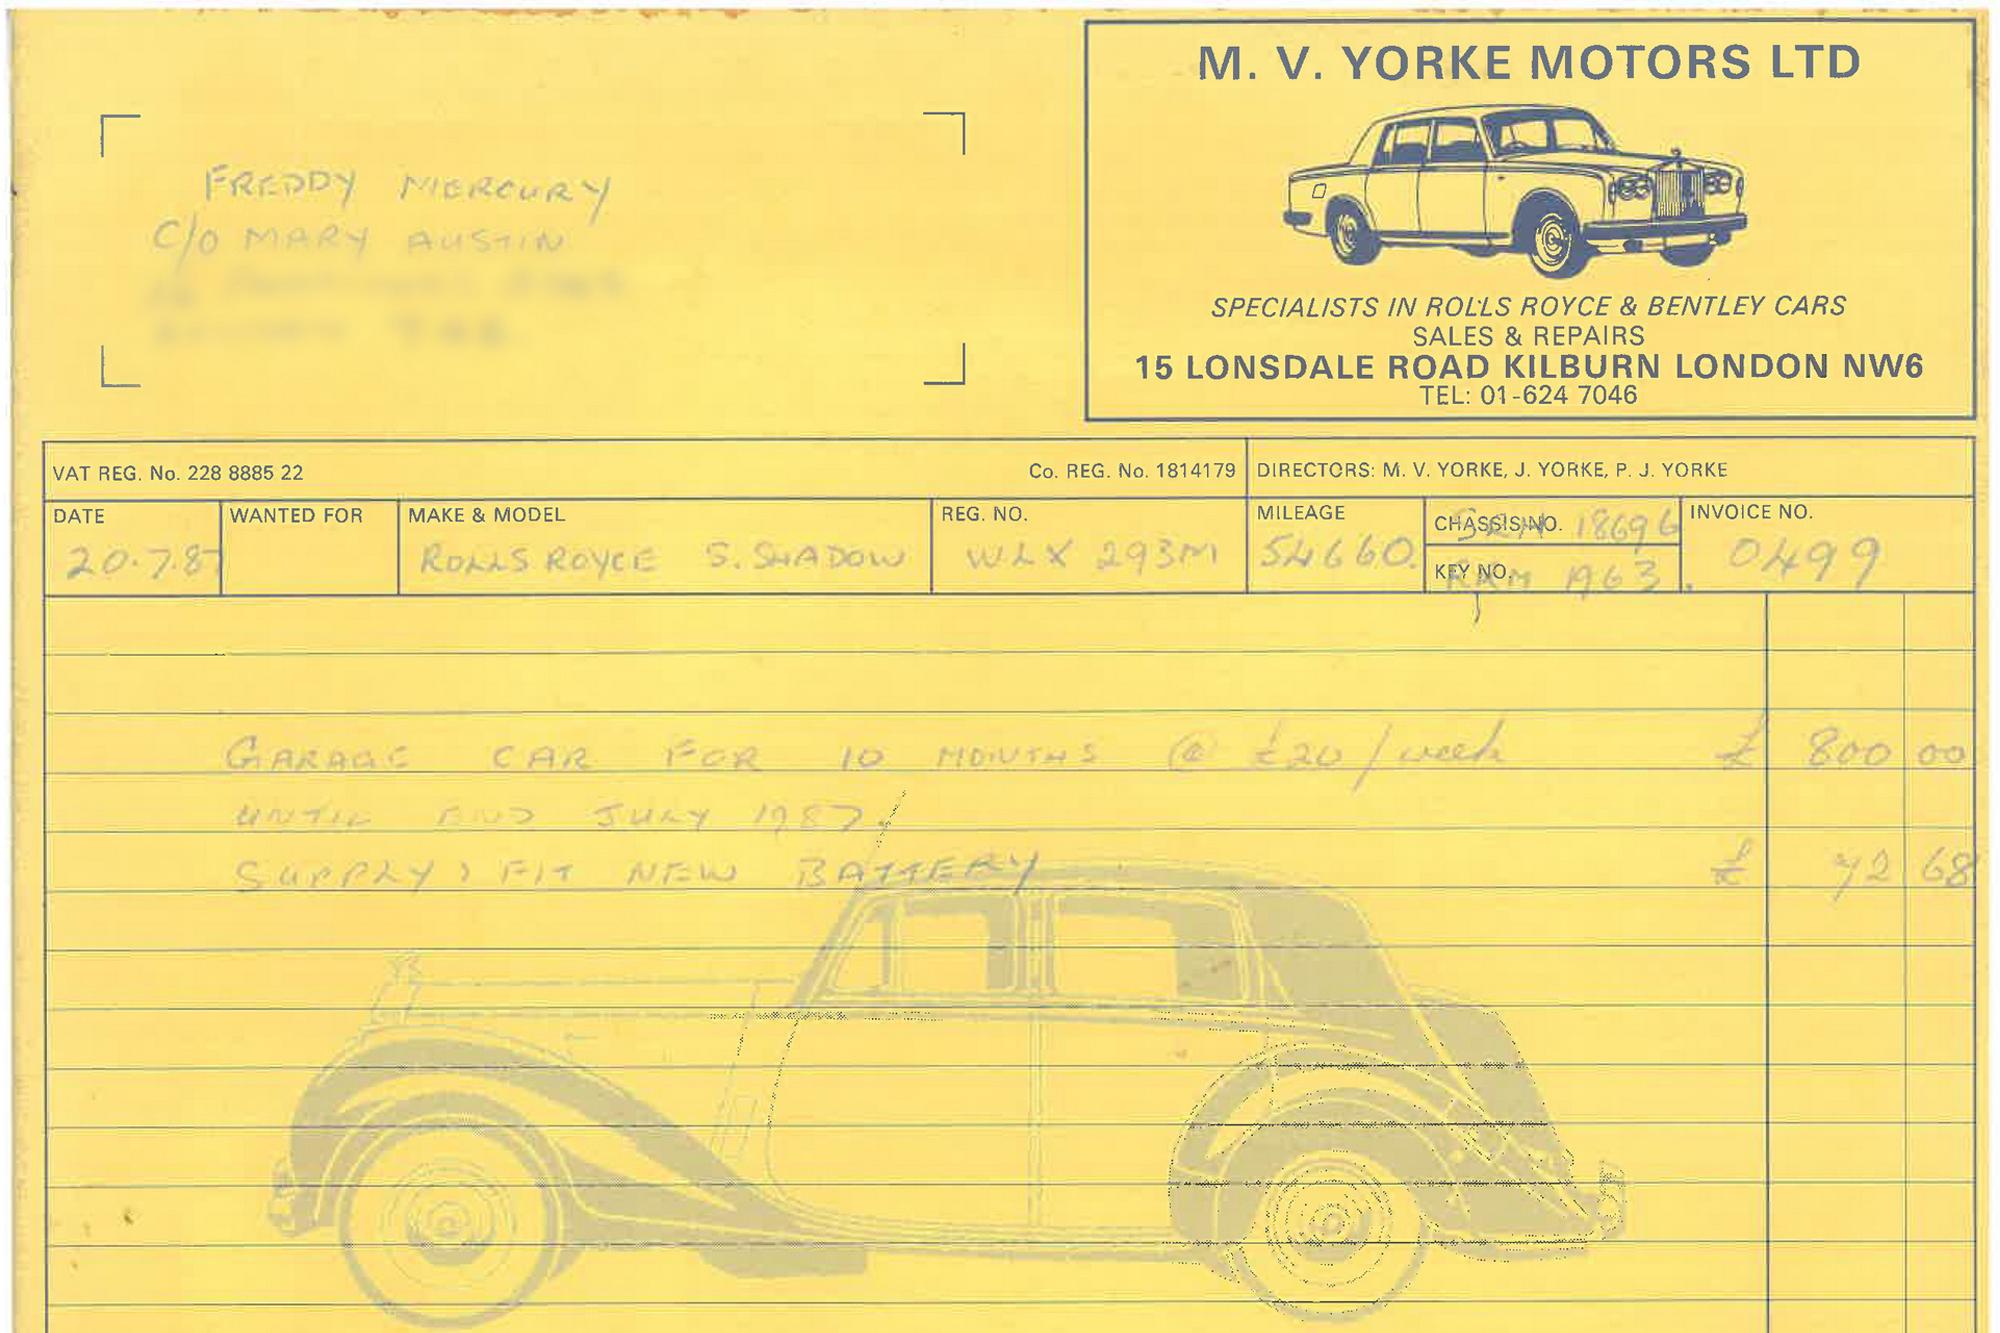 M. V. YORKE MOTORS LTD
FREDDY MERCURY
C/O MARY AUSTIN
SPECIALISTS IN ROLLS ROYCE & BENTLEY CARS
SALES & REPAIRS
15 LONSDALE ROAD KILBURN LONDON NW6
TEL: 01-624 7046
VAT REG. No. 228 8885 22 Co. REG. No. 1814179 DIRECTORS: M. V. YORKE, J. YORKE, P. J. YORKE
DATE WANTED FOR MAKE & MODEL REG. NO. MILEAGE CHASSIS NO. INVOICE NO.
20.7.87 ROLLS ROYCE S. SHADOW WLX 293M 54660. SRH 18696 0499
KEY NO. RRM 1963.
GARAGE CAR FOR 10 MONTHS @ £20/week £ 800 00
UNTIL END JULY 1987.
SUPPLY & FIT NEW BATTERY £ 72 68